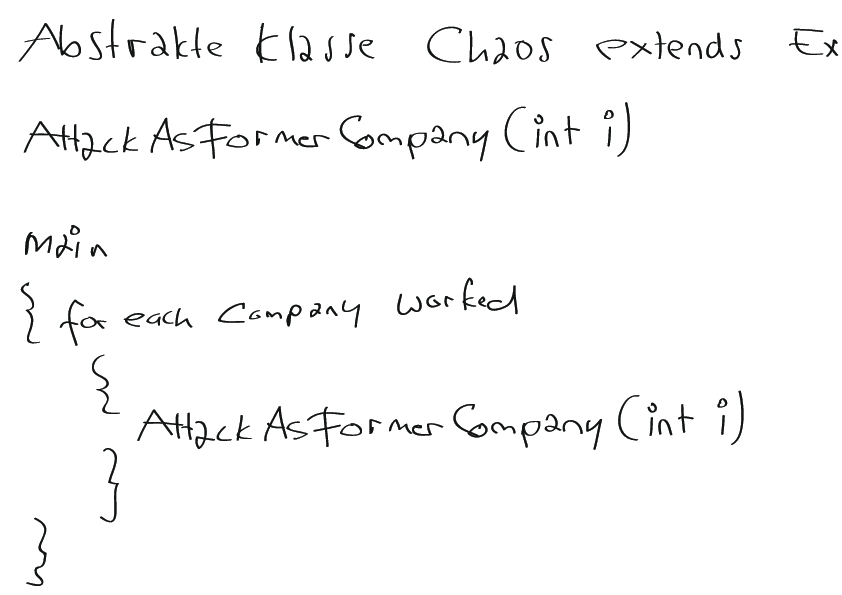 Abstrakte Klasse Chaos extends Ex
AttackAsFormerCompany(int i)
main
{ for each Company worked
{
AttackAsFormerCompany(int i)
}
}